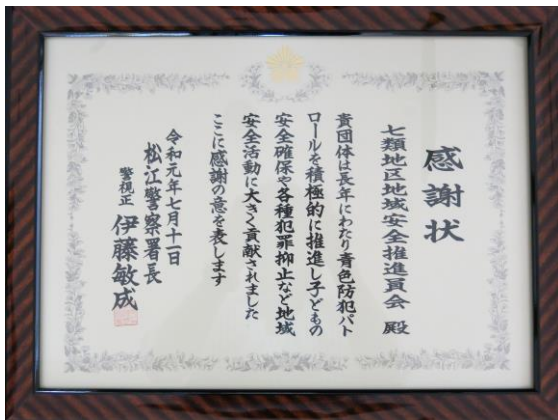 感謝状
七類地区地域安全推進員会 殿
貴団体は長年にわたり青色防犯パト
ロールを積極的に推進し子どもの
安全確保や各種犯罪抑止など地域
安全活動に大きく貢献されました
ここに感謝の意を表します
令和元年七月十一日
松江警察署長
警視正 伊藤敏成